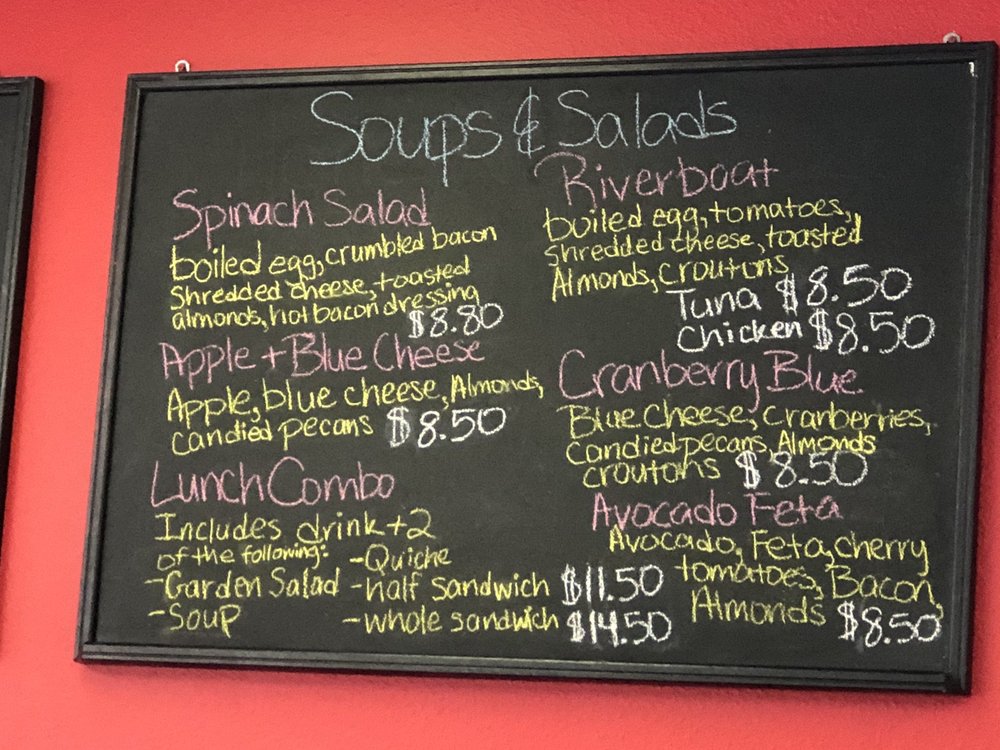 Soups & Salads
Spinach Salad
boiled egg, crumbled bacon
Shredded cheese, toasted
almonds, hot bacon dressing
$8.80
Apple + Blue Cheese
Apple, blue cheese, Almonds,
candied pecans $8.50
Lunch Combo
Includes drink + 2
of the following: - Quiche
- Garden Salad - half sandwich $11.50
- Soup - whole sandwich $14.50
Riverboat
boiled egg, tomatoes,
shredded cheese, toasted
Almonds, croutons
Tuna $8.50
Chicken $8.50
Cranberry Blue
Blue Cheese, Cranberries,
candied pecans, Almonds
croutons $8.50
Avocado Feta
Avocado, Feta, cherry
tomatoes, Bacon,
Almonds $8.50